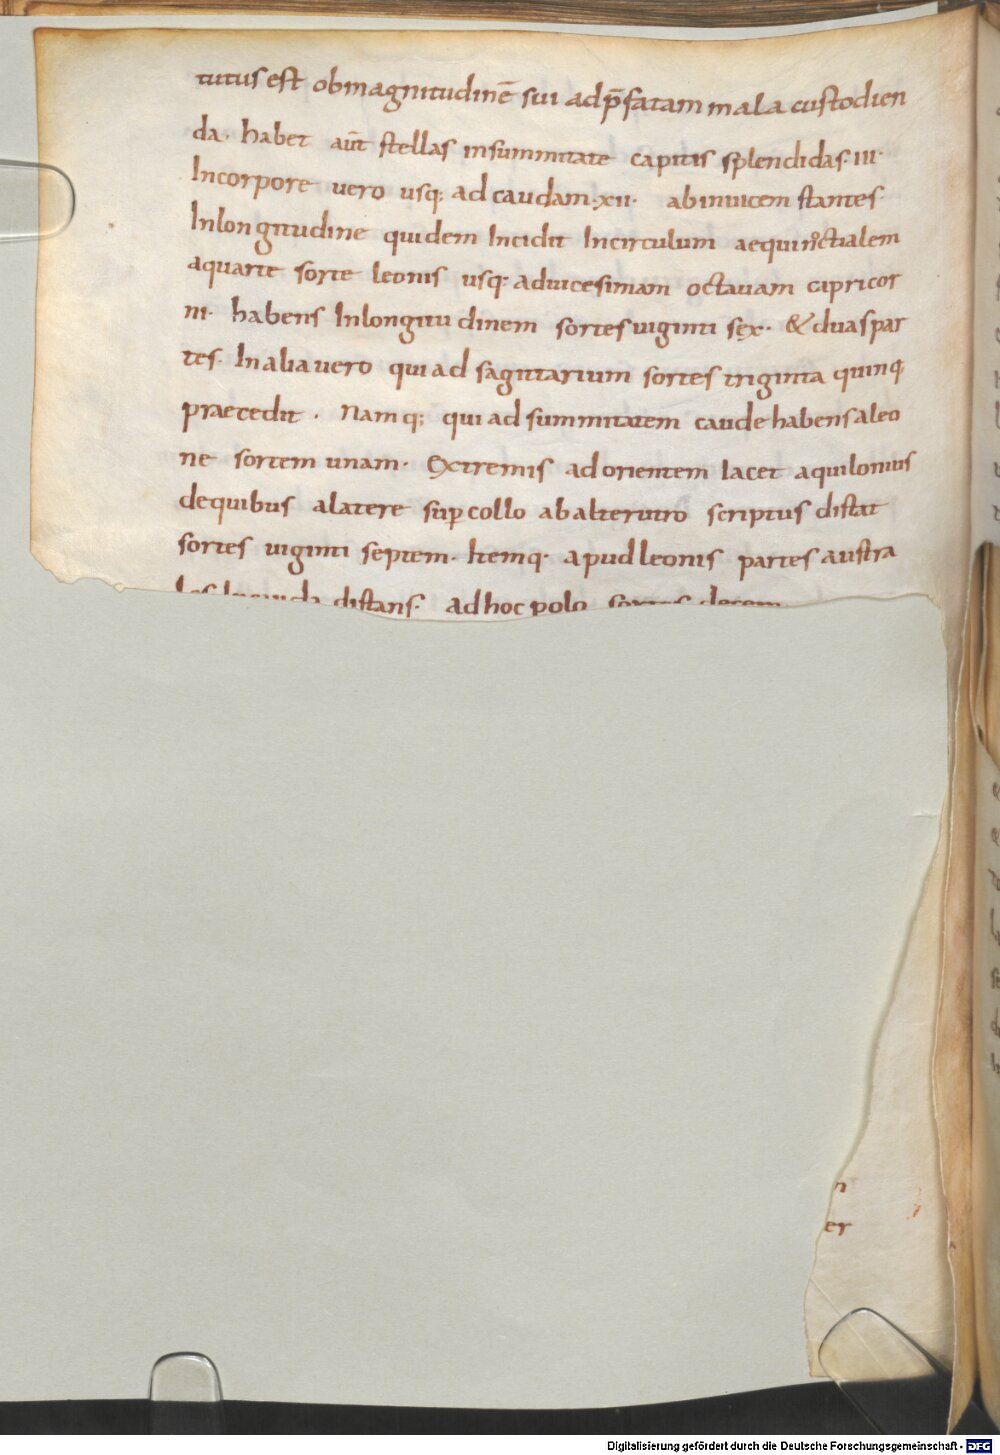 tutus est obmagnitudinē sui adp̄satam mala custodien
da· habet aūt stellas insummitate capitis splendidas·III·
Incorpore vero usq; ad caudam·xii· abinvicem stantes·
Inlongitudine quidem Incidit Incirculum aequinoctialem
aquarte sorte leonis usq; advicesimam octavam capricor
ni· habens Inlongitudinem sortes viginti sex· & duas par
tes· In alia vero qui ad sagittarium sortes triginta quinq;
praecedit· Namq; qui ad summitatem caude habens aleo
ne sortem unam· Extremis ad orientem Iacet aquilonius
dequibus alatere sup collo abalterutro scriptus distat
sortes viginti septem· Itemq· apud leonis partes austra
les distans· ad hoc polo sortes decem
n
er
Digitalisierung gefördert durch die Deutsche Forschungsgemeinschaft - DFG